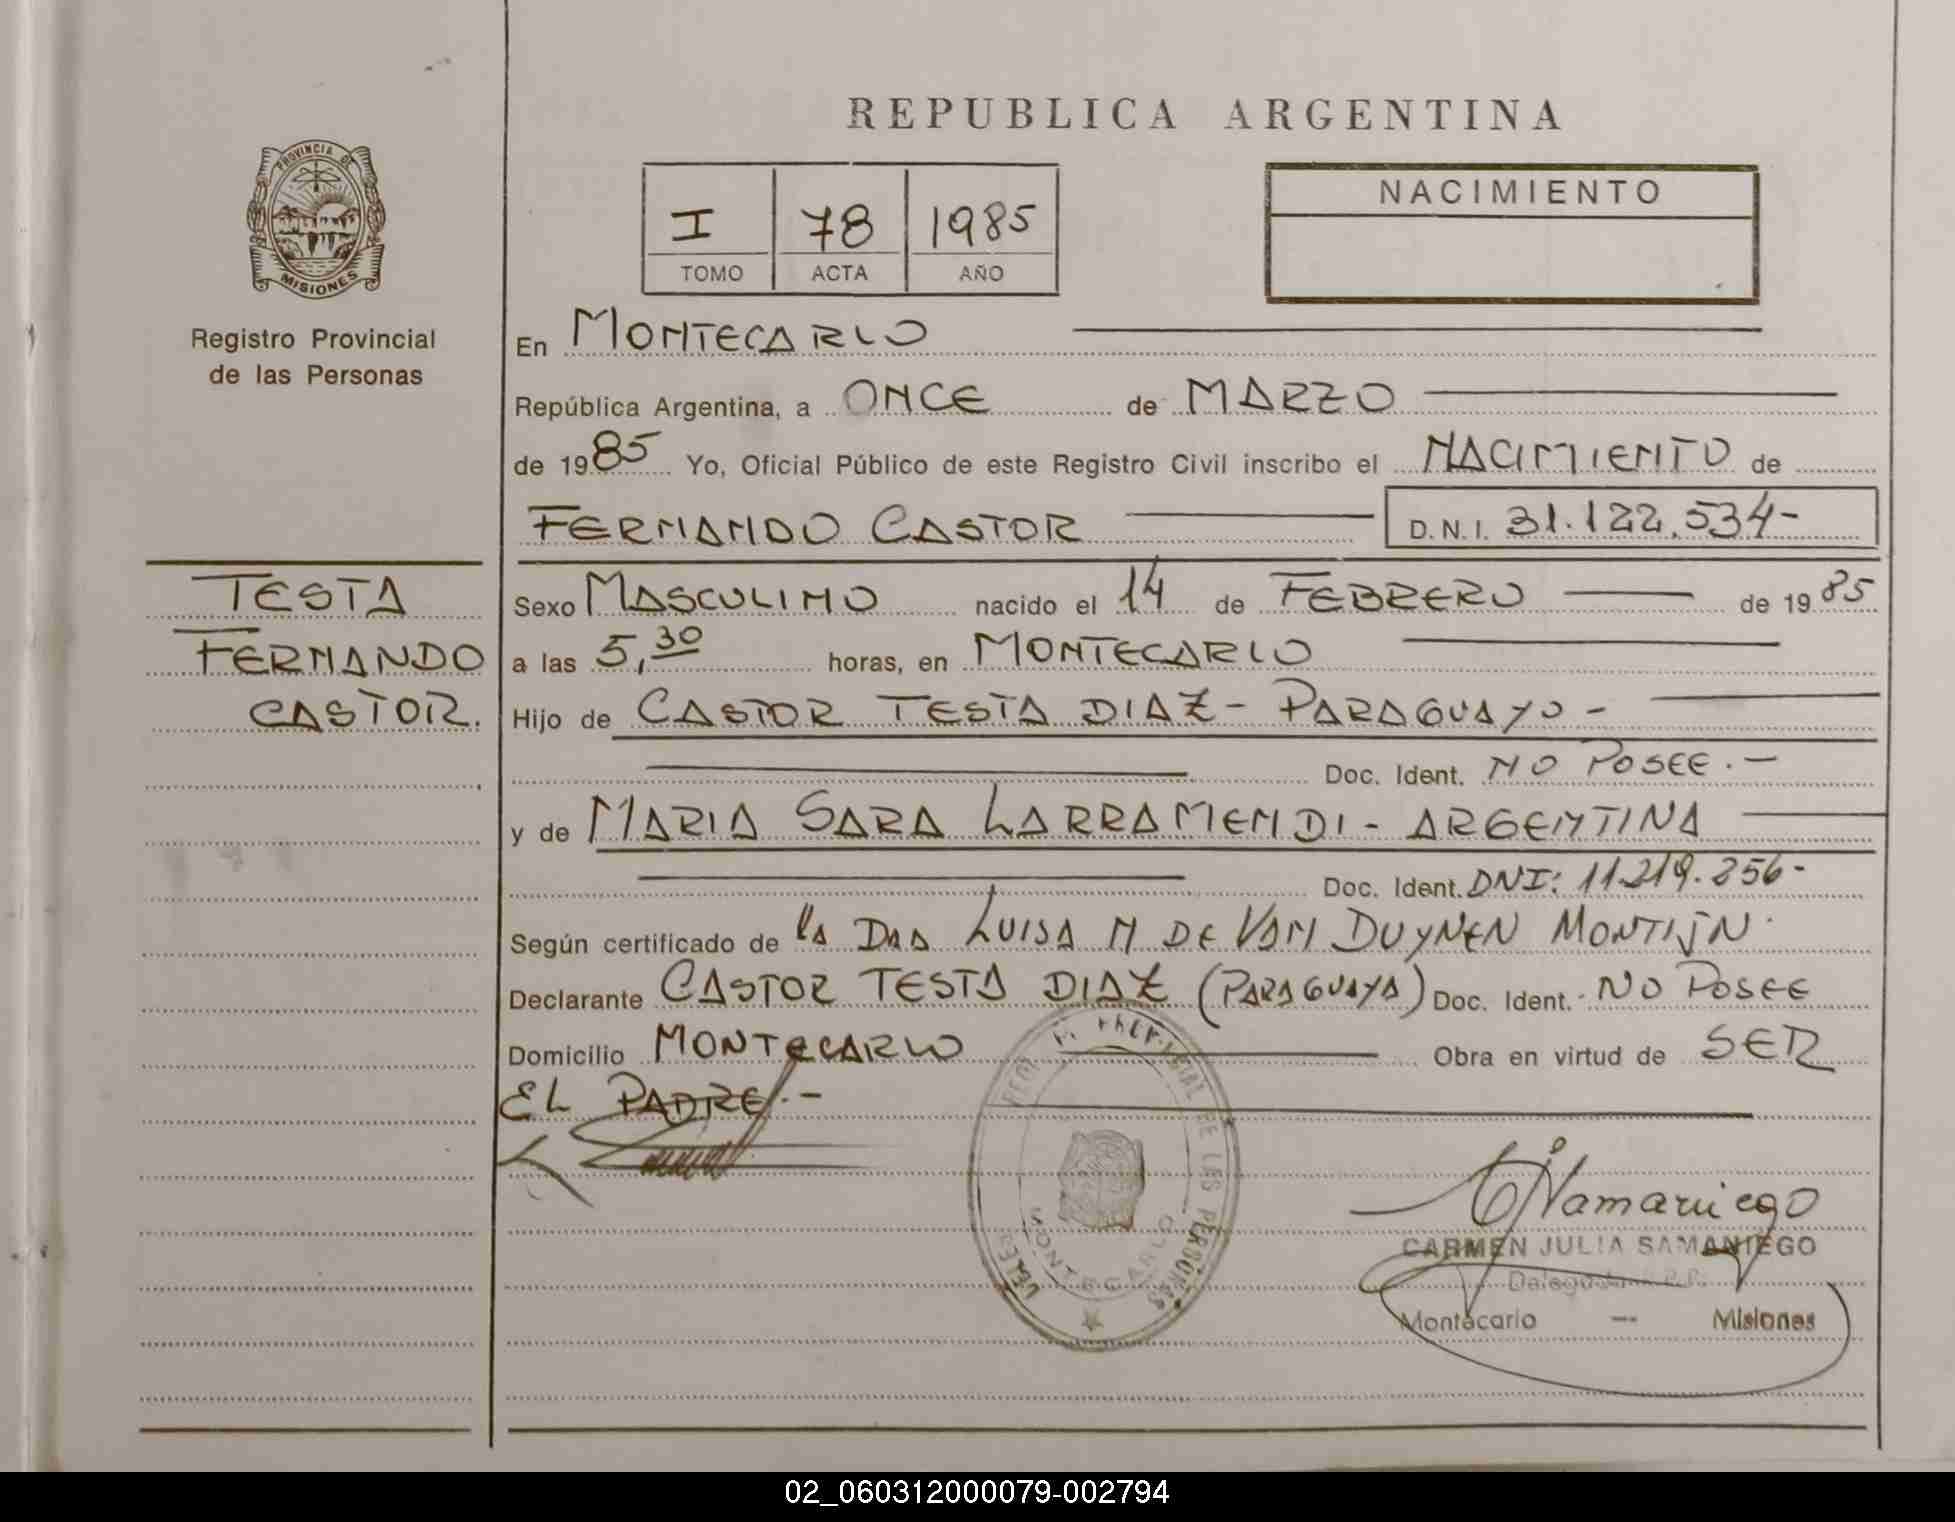 REPUBLICA ARGENTINA
PROVINCIA DE
MISIONES
Registro Provincial
de las Personas
I 78 1985
TOMO ACTA AÑO
NACIMIENTO
En MONTECARLO
República Argentina, a ONCE de MARZO
de 1985 Yo, Oficial Público de este Registro Civil inscribo el NACIMIENTO de
FERNANDO CASTOR D.N.I. 31.122.534-
TESTA
FERNANDO
CASTOR.
Sexo MASCULINO nacido el 14 de FEBRERO de 1985
a las 5,30 horas, en MONTECARLO
Hijo de CASTOR TESTA DIAZ - PARAGUAYO -
Doc. Ident. NO POSEE.-
y de MARIA SARA LARRAMENDI - ARGENTINA
Doc. Ident. DNI: 11.219.856-
Según certificado de la DRA LUISA M DE VAN DUYNEN MONTIJN.
Declarante CASTOR TESTA DIAZ (PARAGUAYA) Doc. Ident. NO POSEE
Domicilio MONTECARLO Obra en virtud de SER
EL PADRE.-
DE LAS PERSONAS
MONTECARLO
CARMEN JULIA SAMANIEGO
Montecarlo — Misiones
02_060312000079-002794